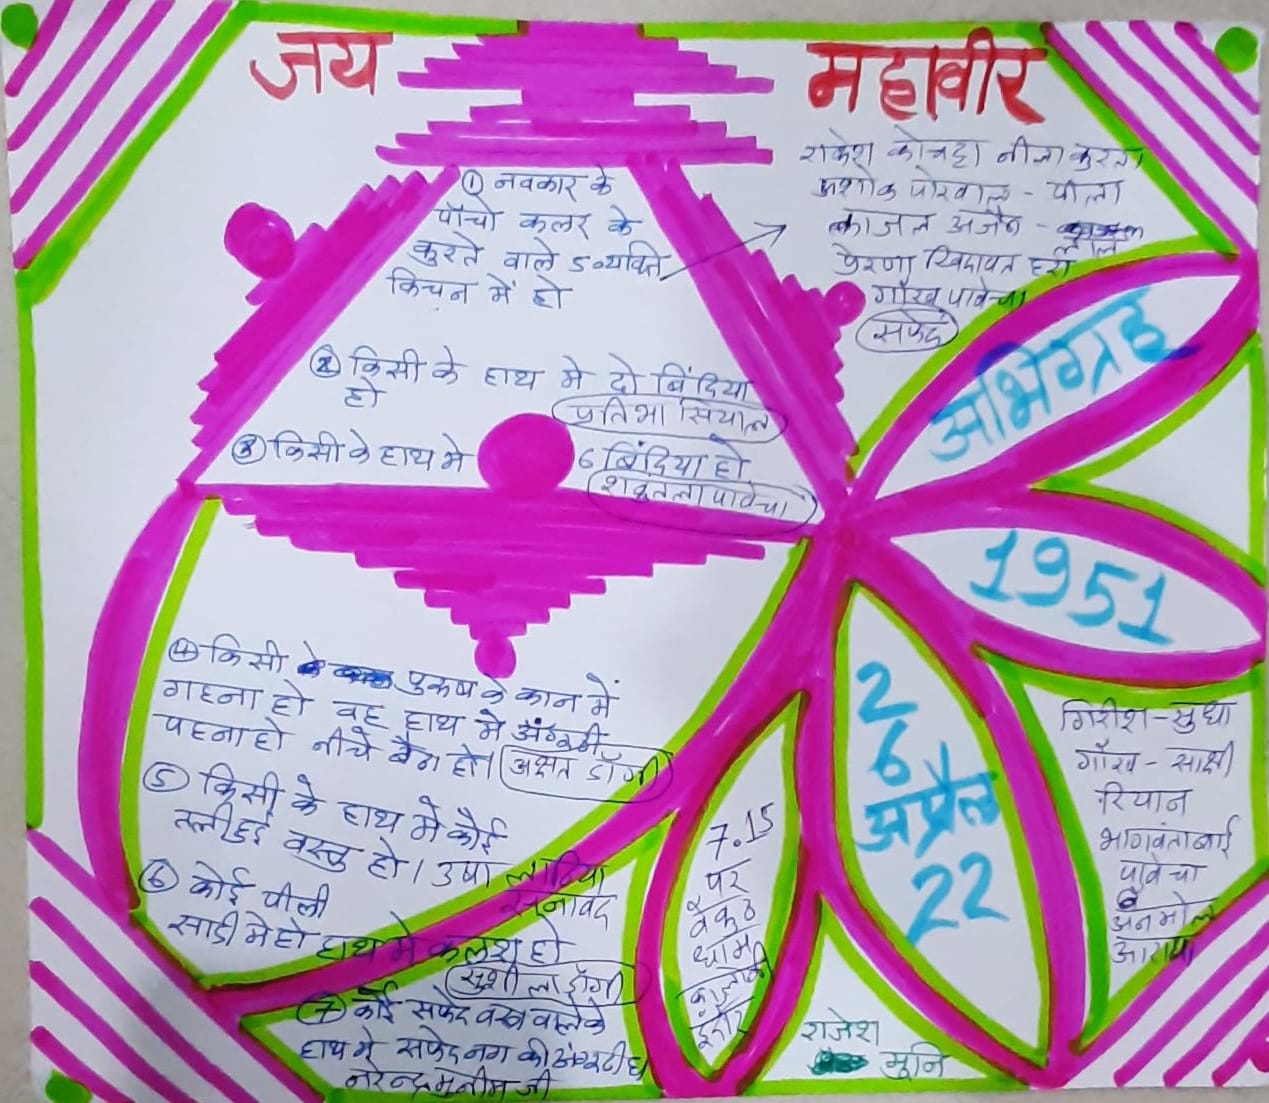 जय महावीर
① नवकार के
पाँचो कलर के
कुरते वाले 5 व्यक्ति
किचन में हो
राकेश कोचट्टा नीला कुरता
अशोक पोरवाल - पीला
काजल अजैन - लाल
प्रेरणा खिंदावत हरा
गौरव पावेचा
सफेद
② किसी के हाथ मे दो बिंदिया
हो
प्रतिभा सियाल
③ किसी के हाथ मे 6 बिंदिया हो
शकुतला पावेचा
अभिग्रह
1951
④ किसी पुरूष के कान में
गहना हो वह हाथ मे अंगूठी
पहना हो नीचे बैग हो।
अक्षत डाँगी
⑤ किसी के हाथ मे कोई
तली हुई वस्तु हो। उषा
⑥ कोई पीली
साडी मे हो हाथ मे कलश हो
सुशीला डाँगी
⑦ कोई सफेद वस्त्र वाले के
हाथ मे सफेद नग की अंगूठी हो
नरेन्द्र मुनीम जी
7.15
पर
वैकुंठ
धाम
कालोनी
इंदौर
26
अप्रैल
22
गिरीश - सुधा
गौरव - साक्षी
रियान
भागवंताबाई
पावेचा
अनमोल
आराध्या
राजेश
मुनि